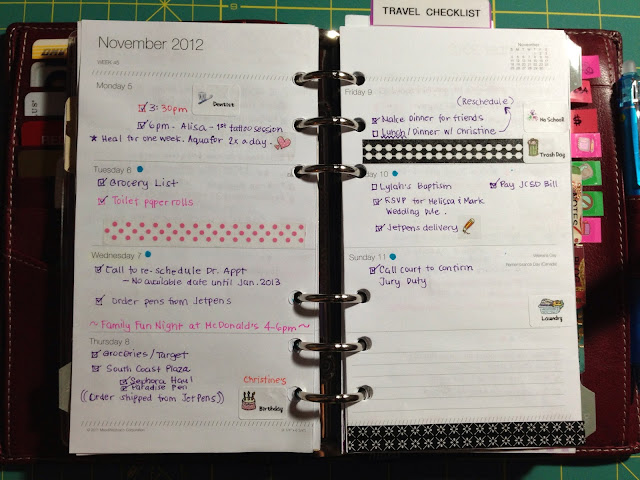 TRAVEL CHECKLIST
November 2012
WEEK 45
Monday 5
3:30pm
Dentist
6pm - Alisa - 1st tattoo session
★ Heal for one week. Aquafor 2x a day.
Tuesday 6
Grocery List
Toilet paper rolls
Wednesday 7
Call to re-schedule Dr. Appt
- No available date until Jan. 2013
Order pens from Jetpens
~ Family Fun Night at McDonald's 4-6pm ~
Thursday 8
Groceries / Target
South Coast Plaza
Sephora Haul
Paradise Pen
((Order shipped from JetPens))
Christine's
Birthday
November
Friday 9
(Reschedule)
Make Dinner for friends
Lunch / Dinner w/ Christine
No School!
Trash Day
day 10
Lylah's Baptism
Pay JCSD Bill
RSVP for Melissa & Mark
Wedding Live.
Jetpens delivery
Sunday 11
Veteran's Day
Remembrance Day (Canada)
Call court to confirm
Jury Duty
Laundry